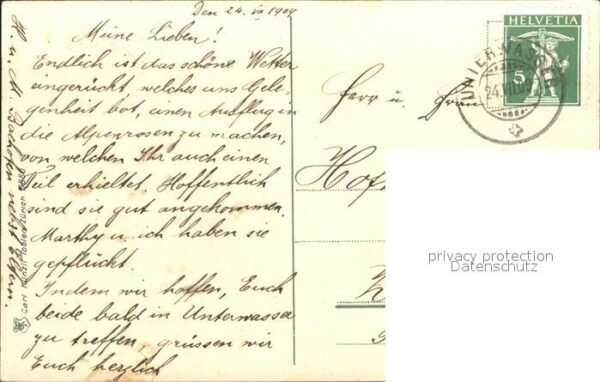 Den 24. VII 1909
Meine Lieben!
Endlich ist das schöne Wetter
eingerückt, welches uns Gele-
genheit bot, einen Ausflug in
die Alpenrosen zu machen,
von welchen Ihr auch einen
Teil erhieltet. Hoffentlich
sind sie gut angekommen.
Marthy u ich haben sie
gepflückt.
Indem wir hoffen, Euch
beide bald in Unterwasser
zu treffen, grüssen wir
Euch herzlich
H. u. M. nebst Eltern.
Carl Künzli-Tobler, Zürich
Herr u. Frau
HELVETIA
5
UNTERWASSER
24.VII.09
privacy protection
Datenschutz